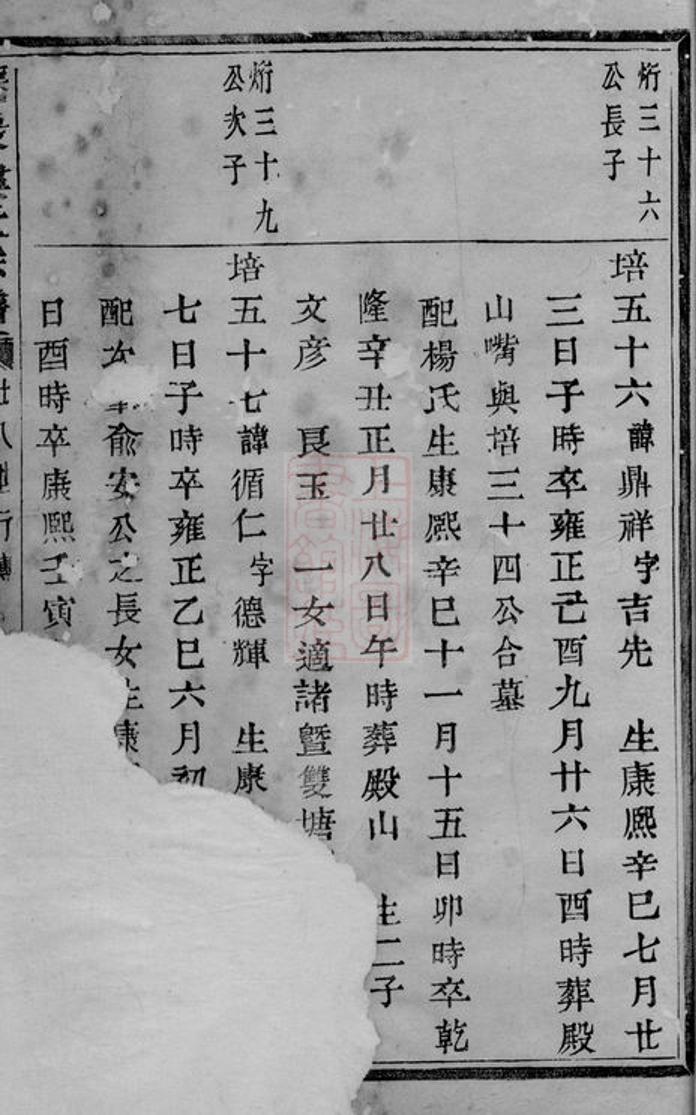 烆三十六
公長子
培五十六諱鼎祥字吉先 生康熙辛巳七月廿
三日子時卒雍正己酉九月廿六日酉時葬殿
山嘴與培三十四公合墓
配楊氏生康熙辛巳十一月十五日卯時卒乾
隆辛丑正月廿八日午時葬殿山 生二子
文彦 良玉 一女適諸暨雙塘
烆三十九
公次子
培五十七諱循仁字德輝 生康
七日子時卒雍正乙巳六月初
配 俞安公之長女生康
日酉時卒康熙壬寅